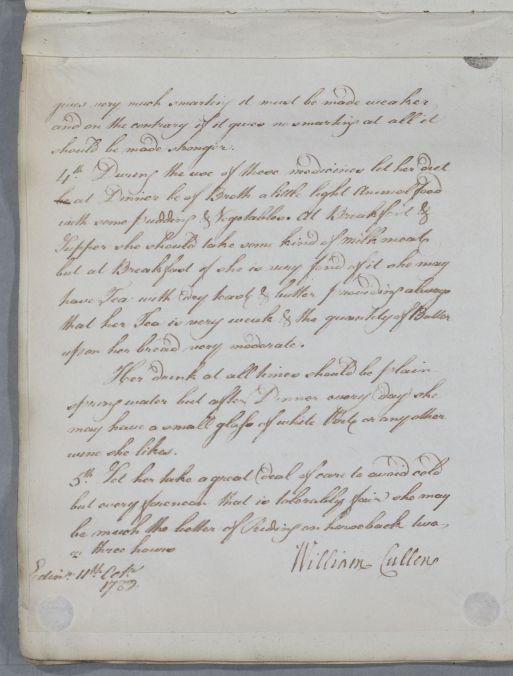 gives very much smarting it must be made weaker
and on the contrary if it gives no smarting at all it
should be made stronger.
4th. During the use of these medicines let her diet
be at Dinner be of Broth a little light Animal food
with some pudding & Vegetables. At Breakfast &
Supper she should take some kind of milk meat,
but at Breakfast if she is very fond of it she may
have Tea with dry toast & butter providing always
that her Tea is very weak & the quantity of Butter
upon her bread very moderate.
Her drink at all times should be plain
spring water but after Dinner every day she
may have a small glass of white Port or any other
wine she likes.
5th. Let her take a great deal of care to avoid cold
but every forenoon that is tolerably fair she may
be much the better of Riding on horseback two,
or three hours
William Cullen
Edinr. 11th Octr.